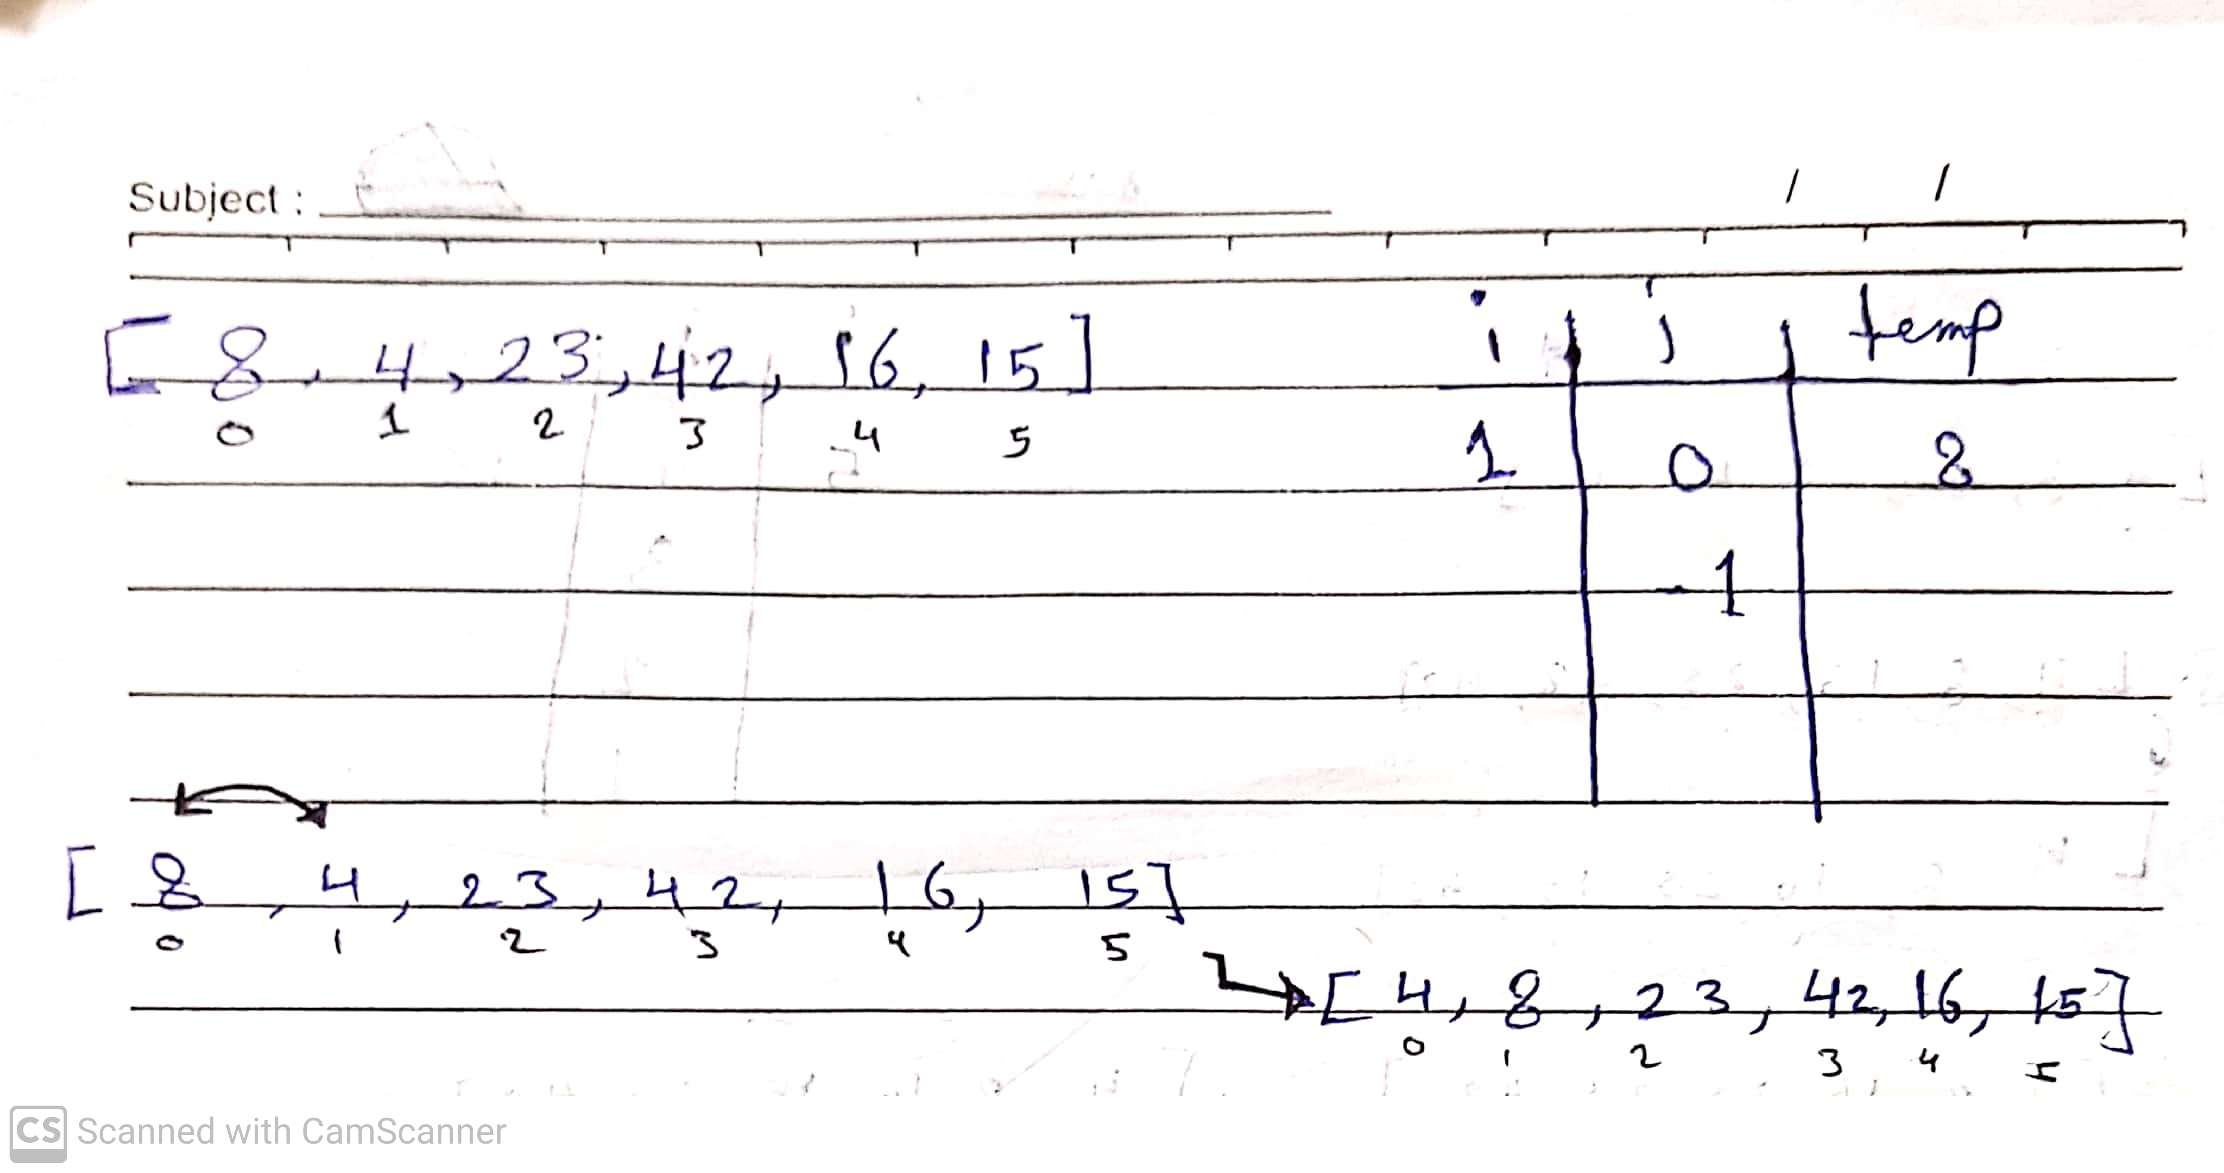 Subject : / /
[ 8, 4, 23, 42, 16, 15 ] i j temp
0 1 2 3 4 5 1 0 8
-1
[ 8, 4, 23, 42, 16, 15 ]
0 1 2 3 4 5
[ 4, 8, 23, 42, 16, 15 ]
0 1 2 3 4 5
CS Scanned with CamScanner